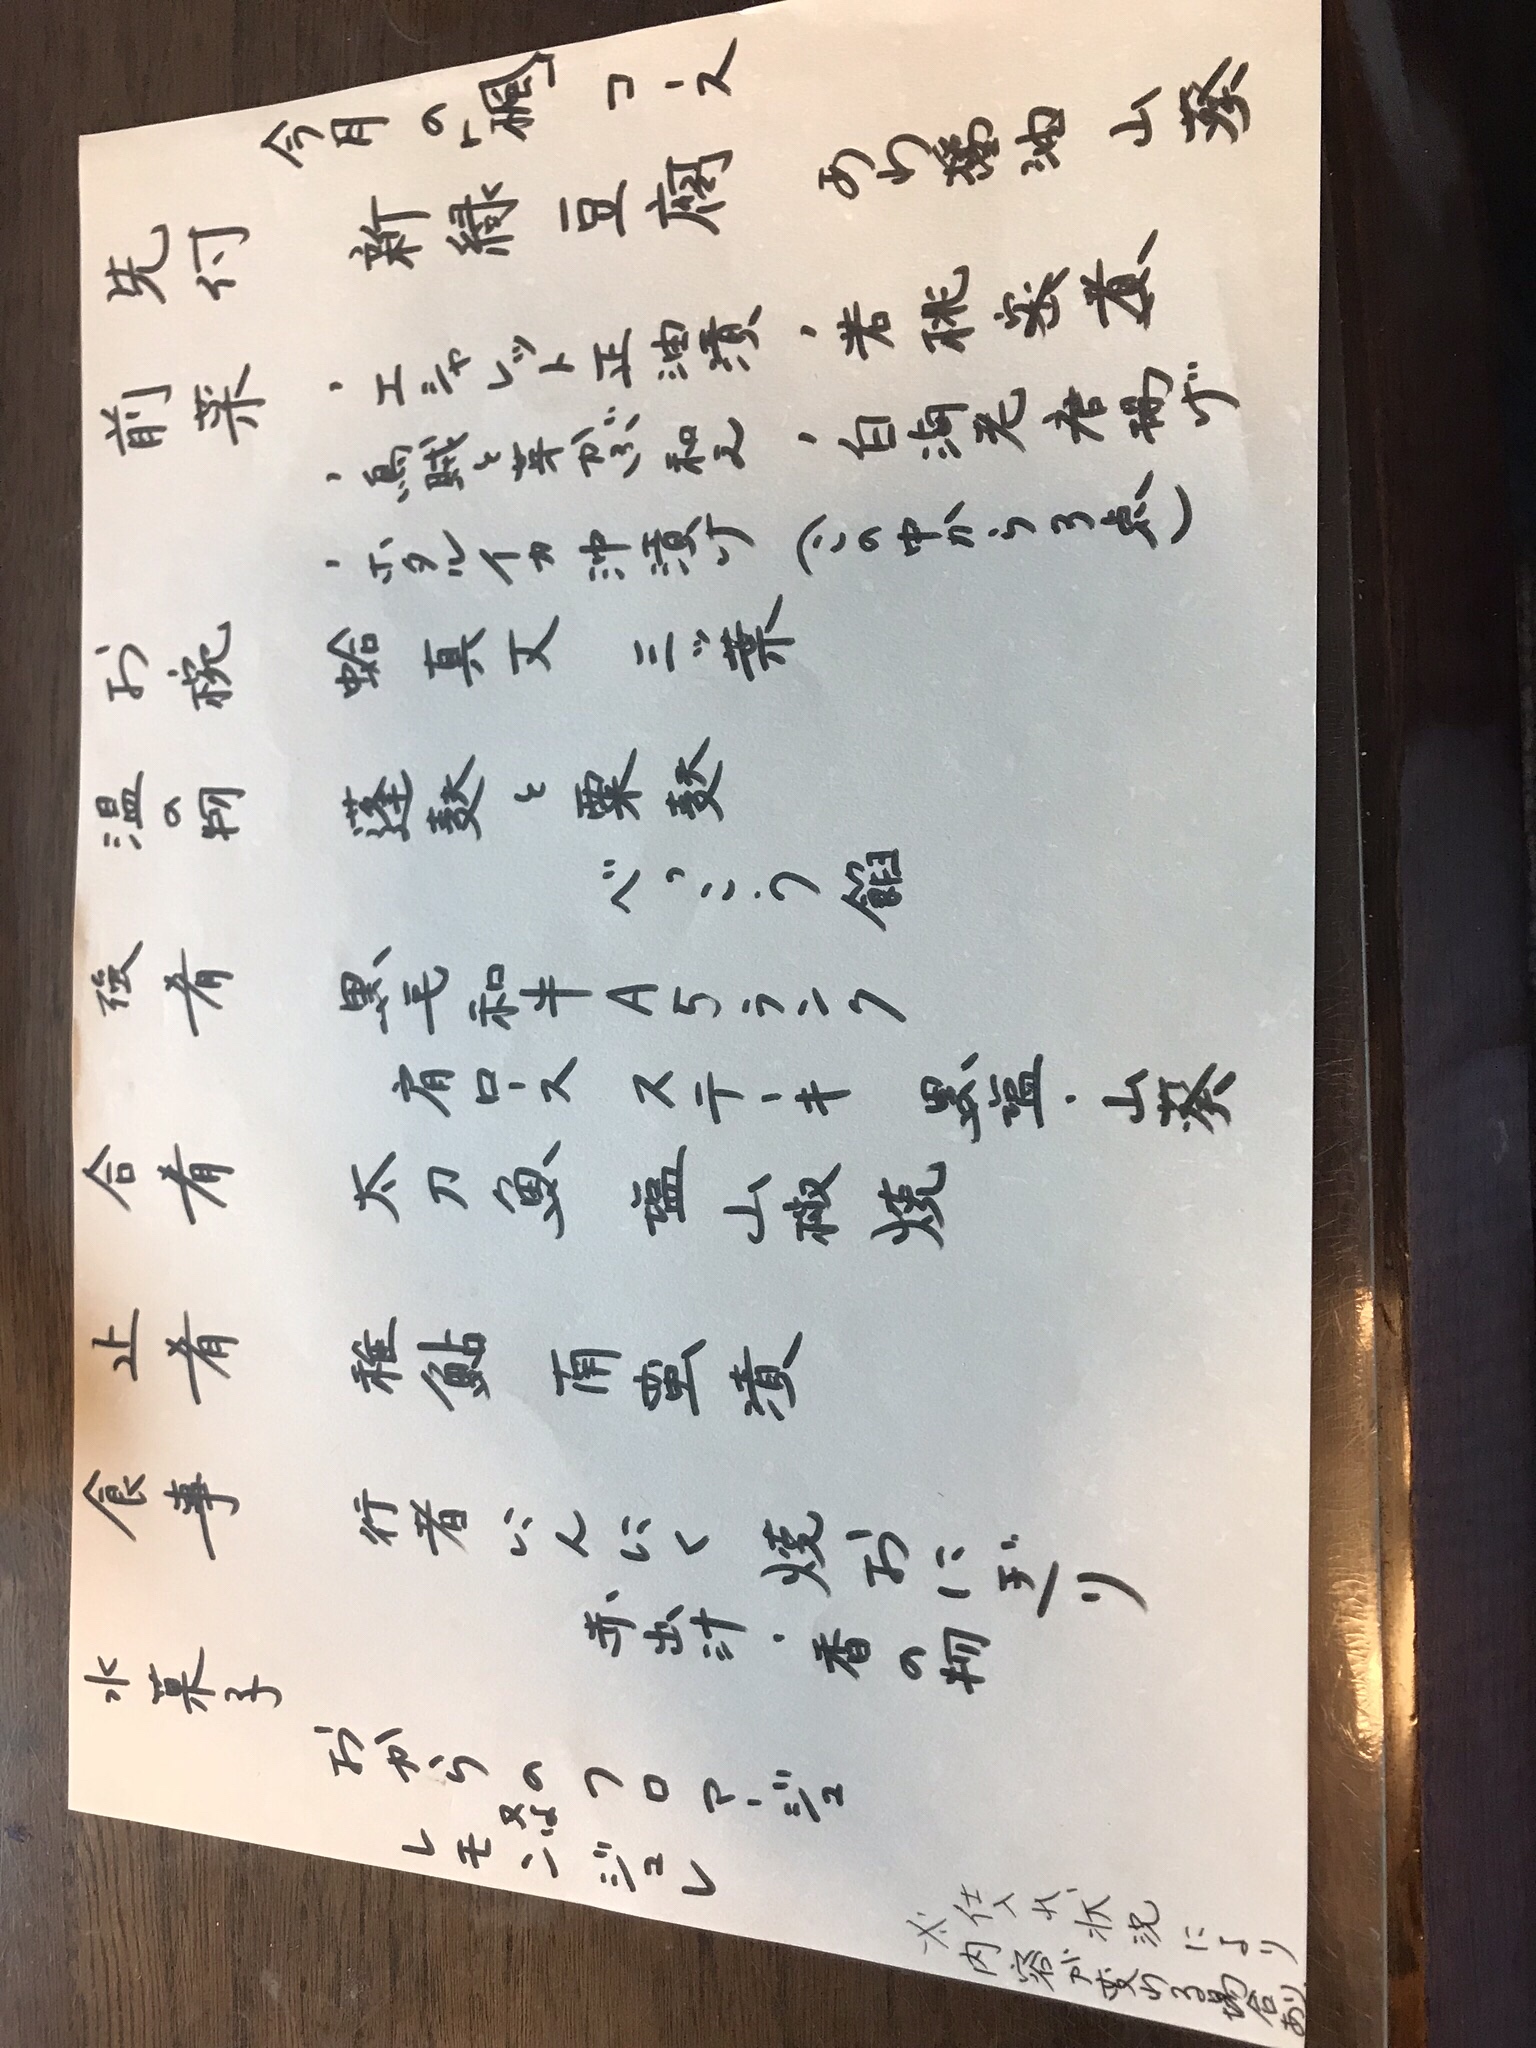 今月の「楓」コース
先付 新緑豆腐 醤油 山葵
前菜 ・エシャレット正油漬 ・若桃蜜煮
・烏賊と芽かぶ和え ・白海老唐揚げ
・ホタルイカ沖漬け (この中から3点)
お椀 蛤真丈 三ッ葉
温の物 蓬麸と粟麸
べっこう餡
強肴 黒毛和牛A5ランク
肩ロースステーキ 黒塩・山葵
合肴 太刀魚 塩山椒焼
止肴 稚鮎 南蛮漬
食事 行者にんにく 焼おにぎり
赤出汁・香の物
水菓子 おからのフロマージュ
又は
レモンジュレ
※仕入れ状況により
内容が変わる場合あり